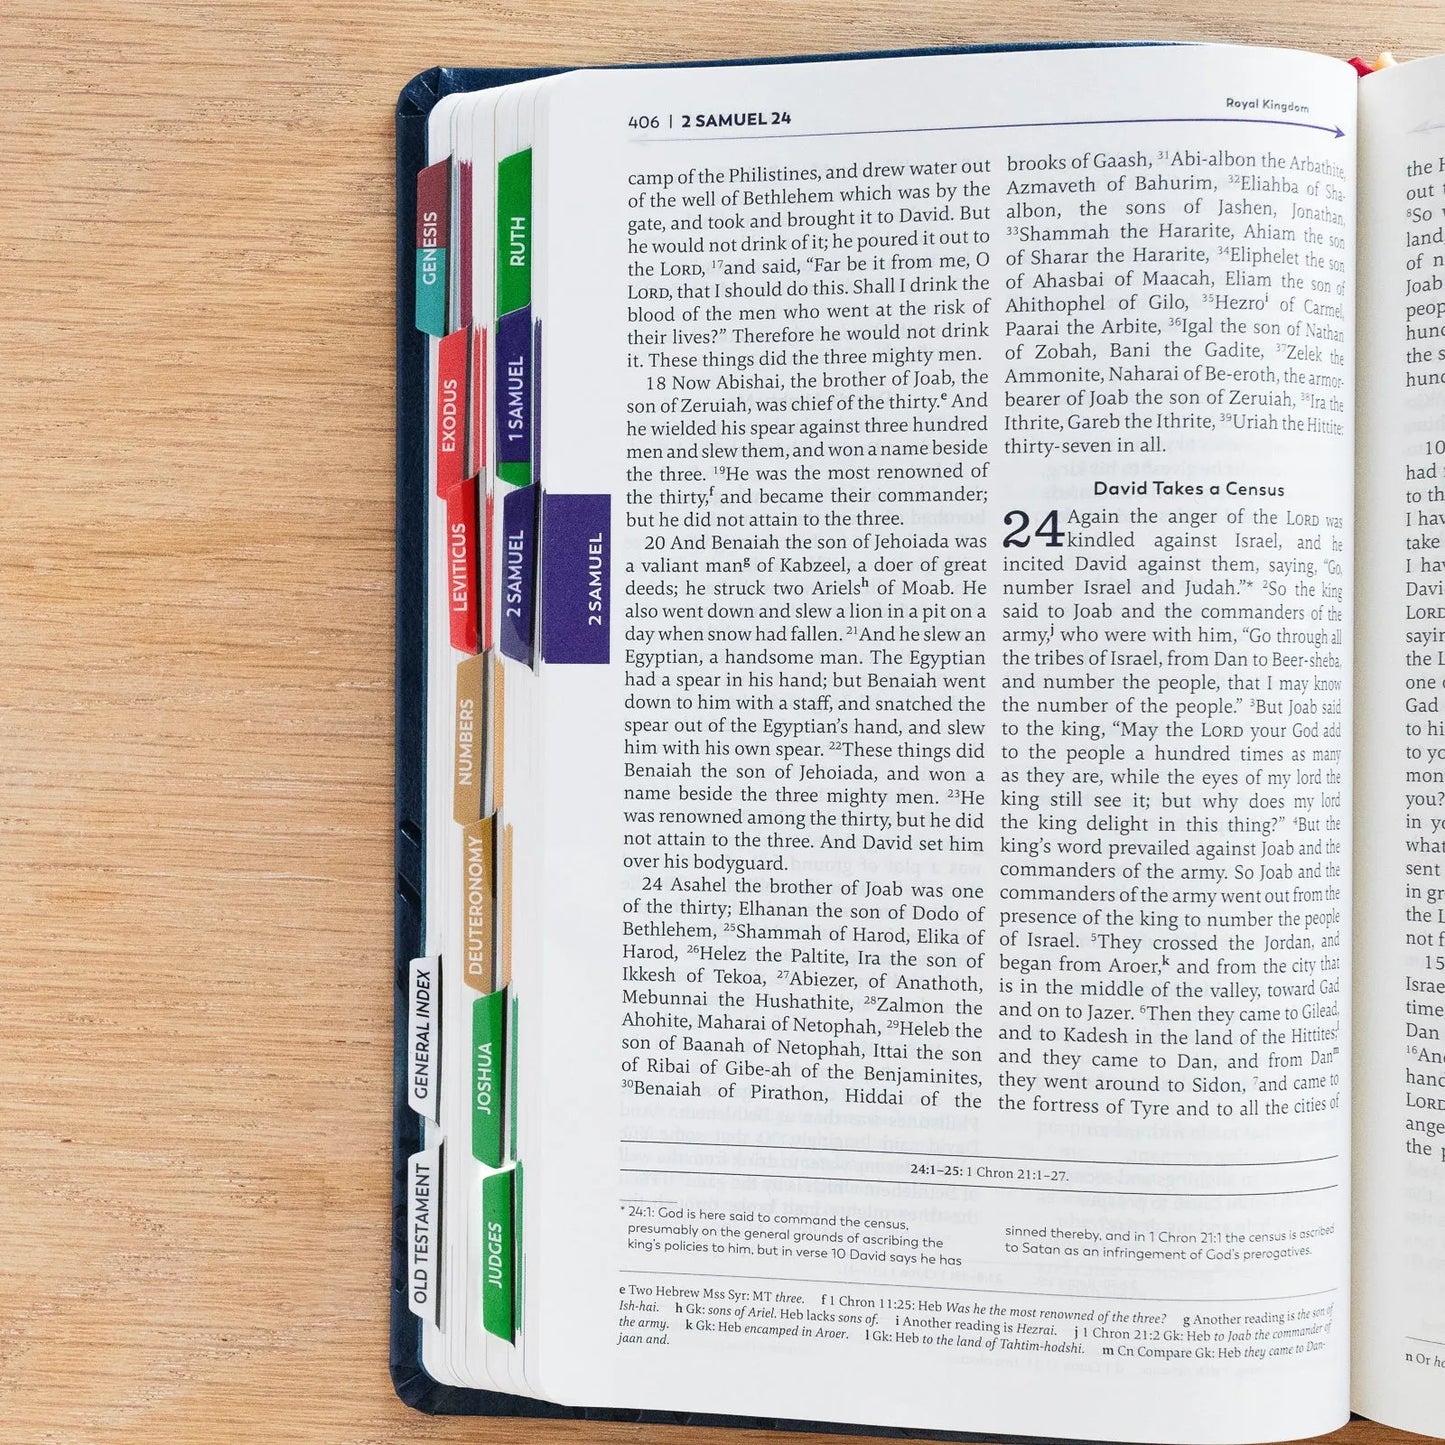 406 | 2 SAMUEL 24
Royal Kingdom
camp of the Philistines, and drew water out
of the well of Bethlehem which was by the
gate, and took and brought it to David. But
he would not drink of it; he poured it out to
the LORD, ¹⁷and said, “Far be it from me, O
LORD, that I should do this. Shall I drink the
blood of the men who went at the risk of
their lives?” Therefore he would not drink
it. These things did the three mighty men.
18 Now Abishai, the brother of Joab, the
son of Zeruiah, was chief of the thirty.ᵉ And
he wielded his spear against three hundred
men and slew them, and won a name beside
the three. ¹⁹He was the most renowned of
the thirty,ᶠ and became their commander;
but he did not attain to the three.
20 And Benaiah the son of Jehoiada was
a valiant manᵍ of Kabzeel, a doer of great
deeds; he struck two Arielsʰ of Moab. He
also went down and slew a lion in a pit on a
day when snow had fallen. ²¹And he slew an
Egyptian, a handsome man. The Egyptian
had a spear in his hand; but Benaiah went
down to him with a staff, and snatched the
spear out of the Egyptian’s hand, and slew
him with his own spear. ²²These things did
Benaiah the son of Jehoiada, and won a
name beside the three mighty men. ²³He
was renowned among the thirty, but he did
not attain to the three. And David set him
over his bodyguard.
24 Asahel the brother of Joab was one
of the thirty; Elhanan the son of Dodo of
Bethlehem, ²⁵Shammah of Harod, Elika of
Harod, ²⁶Helez the Paltite, Ira the son of
Ikkesh of Tekoa, ²⁷Abiezer, of Anathoth,
Mebunnai the Hushathite, ²⁸Zalmon the
Ahohite, Maharai of Netophah, ²⁹Heleb the
son of Baanah of Netophah, Ittai the son
of Ribai of Gibe-ah of the Benjaminites,
³⁰Benaiah of Pirathon, Hiddai of the
brooks of Gaash, ³¹Abi-albon the Arbathite,
Azmaveth of Bahurim, ³²Eliahba of Sha-
albon, the sons of Jashen, Jonathan,
³³Shammah the Hararite, Ahiam the son
of Sharar the Hararite, ³⁴Eliphelet the son
of Ahasbai of Maacah, Eliam the son of
Ahithophel of Gilo, ³⁵Hezroⁱ of Carmel,
Paarai the Arbite, ³⁶Igal the son of Nathan
of Zobah, Bani the Gadite, ³⁷Zelek the
Ammonite, Naharai of Be-eroth, the armor-
bearer of Joab the son of Zeruiah, ³⁸Ira the
Ithrite, Gareb the Ithrite, ³⁹Uriah the Hittite:
thirty-seven in all.
David Takes a Census
24 Again the anger of the LORD was
kindled against Israel, and he
incited David against them, saying, “Go,
number Israel and Judah.”* ²So the king
said to Joab and the commanders of the
army,ʲ who were with him, “Go through all
the tribes of Israel, from Dan to Beer-sheba,
and number the people, that I may know
the number of the people.” ³But Joab said
to the king, “May the LORD your God add
to the people a hundred times as many
as they are, while the eyes of my lord the
king still see it; but why does my lord
the king delight in this thing?” ⁴But the
king’s word prevailed against Joab and the
commanders of the army. So Joab and the
commanders of the army went out from the
presence of the king to number the people
of Israel. ⁵They crossed the Jordan, and
began from Aroer,ᵏ and from the city that
is in the middle of the valley, toward Gad
and on to Jazer. ⁶Then they came to Gilead,
and to Kadesh in the land of the Hittites;ˡ
and they came to Dan, and from Danᵐ
they went around to Sidon, ⁷and came to
the fortress of Tyre and to all the cities of
24:1–25: 1 Chron 21:1–27.
* 24:1: God is here said to command the census,
presumably on the general grounds of ascribing the
king’s policies to him, but in verse 10 David says he has
sinned thereby, and in 1 Chron 21:1 the census is ascribed
to Satan as an infringement of God’s prerogatives.
e Two Hebrew Mss Syr: MT three. f 1 Chron 11:25: Heb Was he the most renowned of the three? g Another reading is the son of
Ish-hai. h Gk: sons of Ariel. Heb lacks sons of. i Another reading is Hezrai. j 1 Chron 21:2 Gk: Heb to Joab the commander of
the army. k Gk: Heb encamped in Aroer. l Gk: Heb to the land of Tahtim-hodshi. m Cn Compare Gk: Heb they came to Dan-
jaan and.
GENESIS
EXODUS
LEVITICUS
NUMBERS
DEUTERONOMY
JOSHUA
JUDGES
RUTH
1 SAMUEL
2 SAMUEL
2 SAMUEL
GENERAL INDEX
OLD TESTAMENT
the
out
⁸So
land
of
Joab
the
10
had
to th
I
take
I
Davi
LORD
the
one
Gad
to
to
you?
in
what
sent
in
the
not
15
Israe
time
Dan
LORD
the
n Or